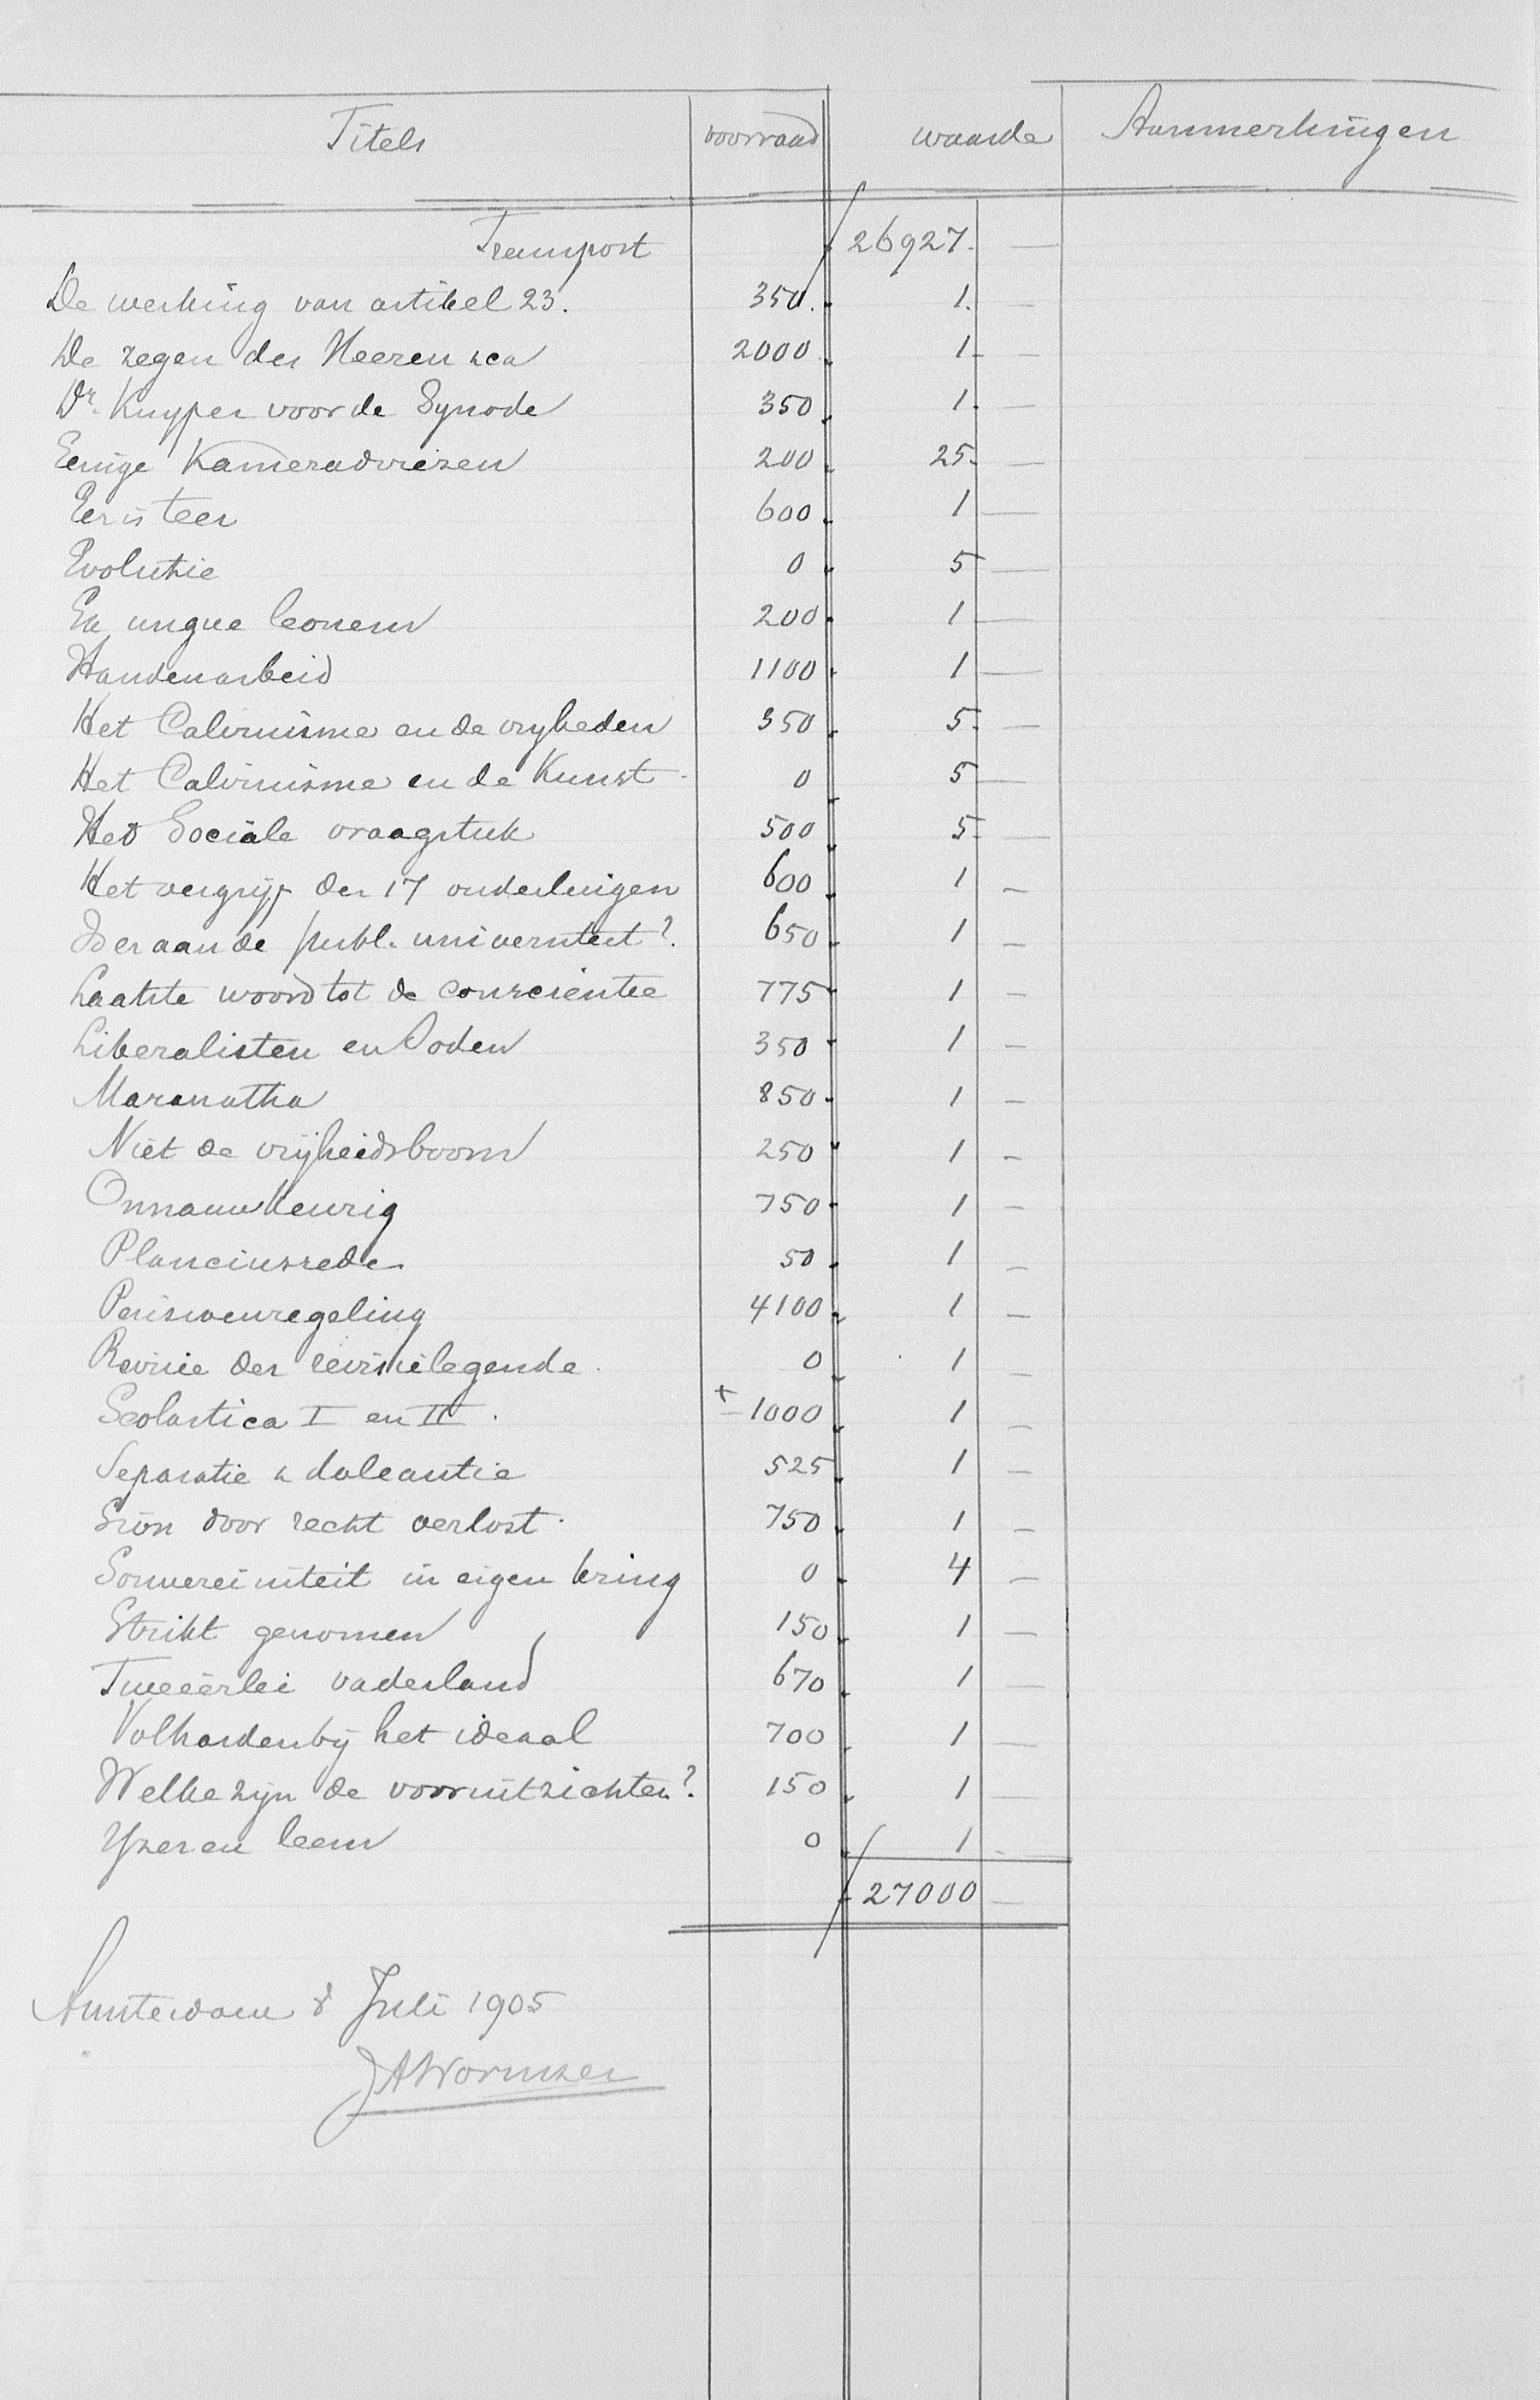 Titels voorraad waarde Aanmerkingen
Transport 26927. —
De werking van artikel 23. 350. 1. —
De zegen des Heeren zca 2000 1 —
Dr. Kuyper voor de Synode 350 1. —
Eenige Kameradviezen 200 25. —
Eer is teer 600 1 —
Evolutie 0 5 —
Ex ungue leonem 200 1 —
Handenarbeid 1100 1 —
Het Calvinisme en de vryheden 350 5. —
Het Calvinisme en de Kunst 0 5 —
Het Sociale vraagstuk 500 5. —
Het vergrijp der 17 ouderlingen 600 1 —
Is er aan de publ. universiteit? 650 1 —
Laatste woord tot de conscientie 775 1 —
Liberalisten en Joden 350 1 —
Maranatha 850 1 —
Niet de vrijheidsboom 250 1 —
Onnauwkeurig 750 1 —
Planciusrede 50 1 —
Pensioenregeling 4100 1 —
Revisie der revisielegende. 0 1 —
Scolastica I en II. ± 1000 1 —
Separatie & doleantie 525 1 —
Sion door recht verlost. 750 1 —
Souvereiniteit in eigen kring 0 4 —
Strikt genomen 150 1 —
Tweeërlei vaderland 670 1 —
Volharden bij het ideaal 700 1 —
Welke zijn de vooruitzichten? 150 1 —
Yzer en leem 0 1 —
27000 —
Amsterdam 8 Juli 1905
JAWormser